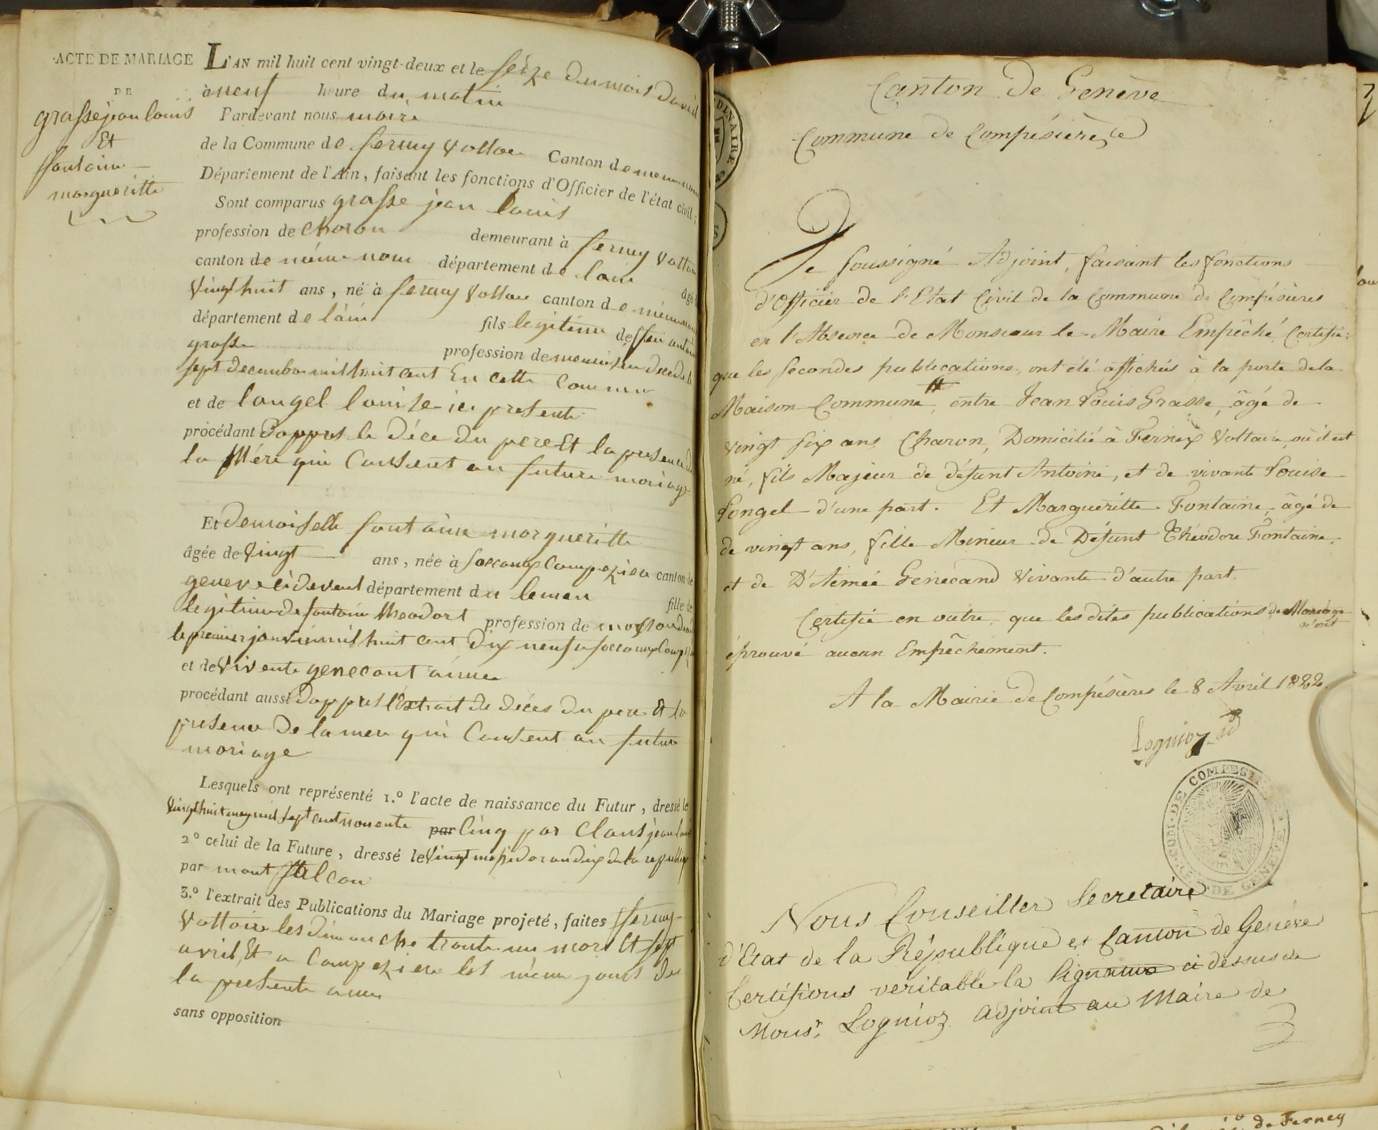 ACTE DE MARIAGE
DE
grasse jean louis
Et
fontaine
margueritte
L'AN mil huit cent vingt-deux et le seize du mois d'avril
à neuf heure du matin
Pardevant nous maire
de la Commune de ferney voltaire Canton de meme nom
Département de l'Ain, faisant les fonctions d'Officier de l'état civil;
Sont comparus grasse jean louis
profession de charon demeurant à ferney voltaire
canton de même nom département de lain âgé
vingt huit ans, né à ferney voltaire canton de même nom
département de lain fils legitime de feu antoine
grasse profession de decedé le
sept decembre mil huit cent en cette commune
et de langel louise ici presente
procédant d'appres le déce du pere et la presence de
la Mère qui consent au future mariage
Et demoiselle fontaine margueritte
âgée de vingt ans, née à compezier canton de
geneve cidevent département du leman fille
legitime de fontaine theodort profession de
le premier janvier mil huit cent dix neuf a
et de vivente genecant aimee
procédant aussi d'appres l'Extrait de déces du pere et la
presence de la mere qui consent au future
mariage
Lesquels ont représenté 1.° l'acte de naissance du Futur, dressé le
vingt huit may mil sept cent nonente par cinq par Claus jean louis
2° celui de la Future, dressé le vingt an dix de la republique
par mont falcon
3.° l'extrait des Publications du Mariage projeté, faites ferney
voltaire les dimanche trente un mars et sept
avril, Et a compezier les même jours de
la presente annee
sans opposition
Canton de Genève
Commune de Compésières
Je soussigné Adjoint, faisant les fonctions
d'officier de l'Etat Civil de la Commune de Compésières
en l'Absence de Monsieur le Maire Empêché Certifie
que les secondes publications ont été affichées à la porte de la
Maison Commune, entre Jean Louis Grasse, âgé de
vingt six ans, Charon, Domicilié à Fernex Voltaire, où il est
né, fils Majeur de défunt Antoine, et de vivante Louise
Longel d'une part. Et Margueritte Fontaine, âgé de
de vingt ans, fille Mineur de Défunt Théodore Fontaine,
et de D'Aimée Genecand Vivante d'autre part.
Certifie en outre, que les dites publications de Mariage n'ont
éprouvé aucun Empêchement.
A la Mairie de Compésières le 8 Avril 1822.
Lognioz
Nous Conseiller Secretaire
d'Etat de la République et Canton de Genève
Certifions veritable la signature ci dessus de
Monsr. Lognioz adjoint au Maire de
de Ferney